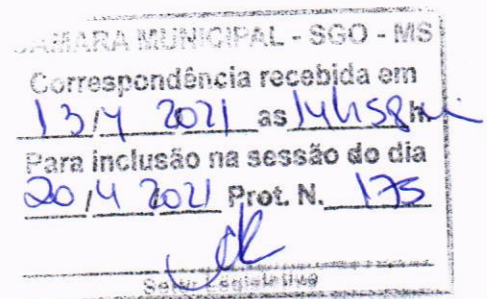 CÂMARA MUNICIPAL - SGO - MS
Correspondência recebida em
13/4 2021 as 14h58 h
Para inclusão na sessão do dia
20/4 2021 Prot. N. 175
Legislativo